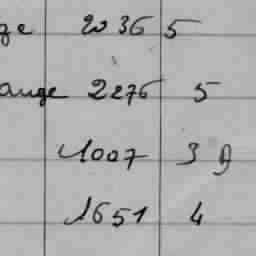 ge 2036 5
ange 2276 5
1007 39
1651 4